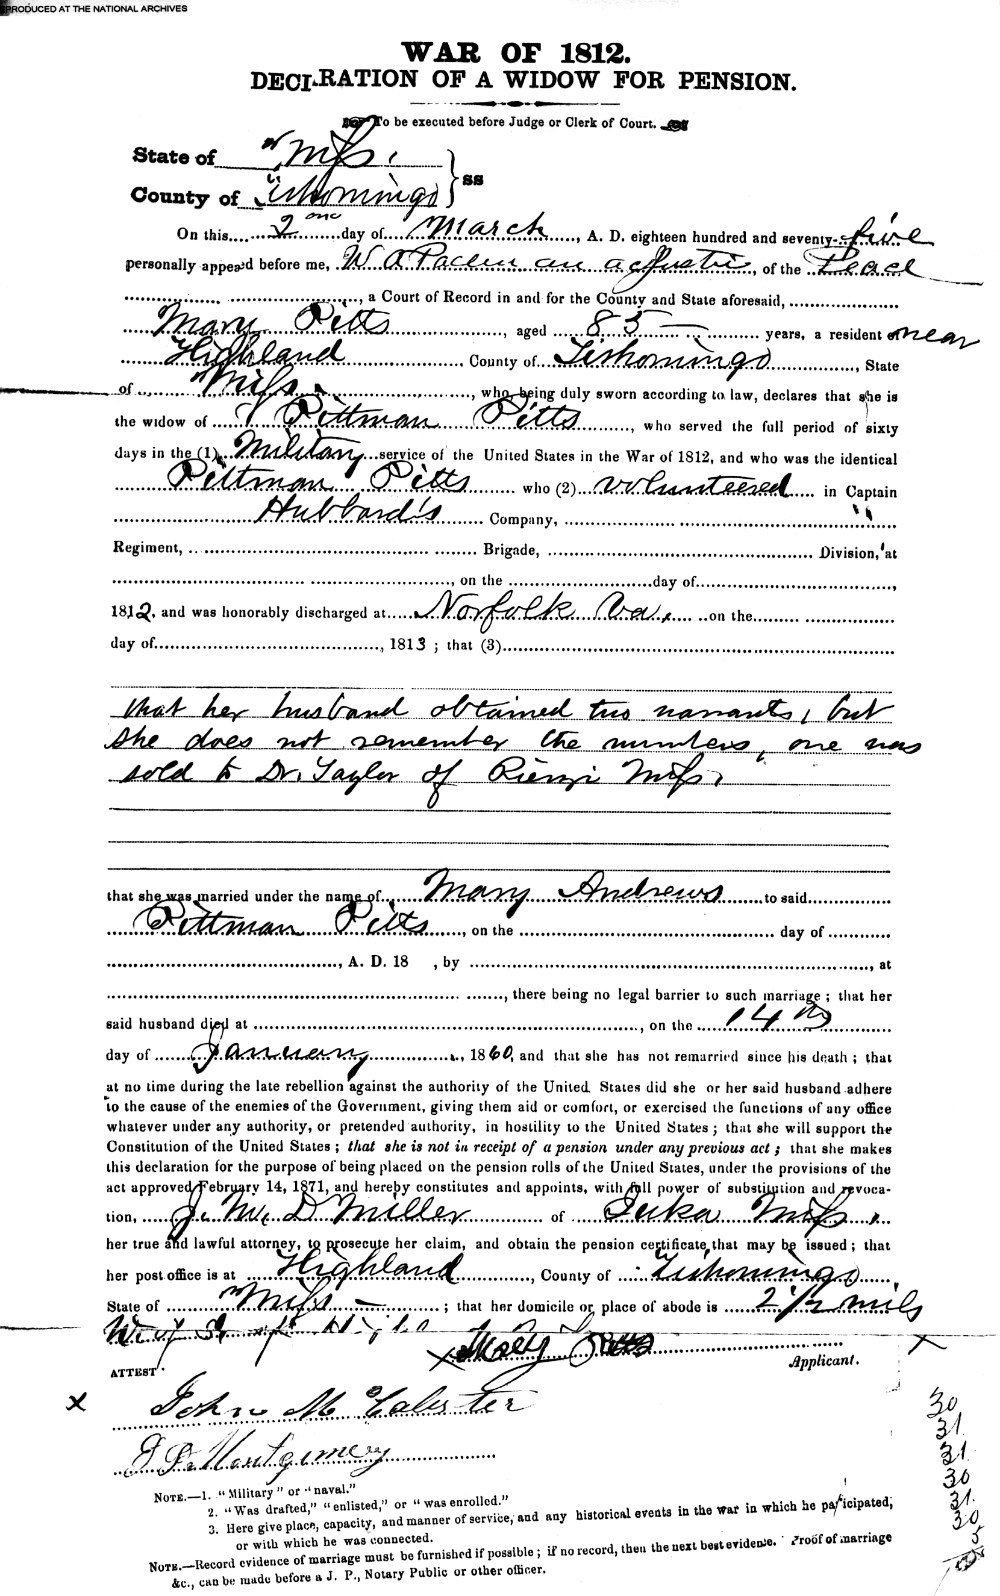 REPRODUCED AT THE NATIONAL ARCHIVES
WAR OF 1812.
DECLARATION OF A WIDOW FOR PENSION.
To be executed before Judge or Clerk of Court.
State of Miss.
County of Tishomingo } ss
On this 2ond day of March, A. D. eighteen hundred and seventy-five
personally appeared before me, W A an a Justic, of the Peace
, a Court of Record in and for the County and State aforesaid,
Mary Pitts, aged 85 — years, a resident of near
Highland, County of Tishomingo, State
of Miss., who being duly sworn according to law, declares that she is
the widow of Pittman Pitts, who served the full period of sixty
days in the (1) Military service of the United States in the War of 1812, and who was the identical
Pittman Pitts who (2) volunteered in Captain
Hubbard's Company, "
Regiment, Brigade, Division, at
, on the day of ,
1812, and was honorably discharged at Norfolk Va, on the
day of , 1813 ; that (3)
that her husband obtained two warrants, but
she does not remember the numbers, one was
sold to Dr. Taylor of Rienzi Miss,
that she was married under the name of Mary Andrews to said
Pittman Pitts, on the day of
, A. D. 18 , by , at
, there being no legal barrier to such marriage ; that her
said husband died at , on the 14th
day of January, 1860, and that she has not remarried since his death ; that
at no time during the late rebellion against the authority of the United States did she or her said husband adhere
to the cause of the enemies of the Government, giving them aid or comfort, or exercised the functions of any office
whatever under any authority, or pretended authority, in hostility to the United States ; that she will support the
Constitution of the United States ; that she is not in receipt of a pension under any previous act ; that she makes
this declaration for the purpose of being placed on the pension rolls of the United States, under the provisions of the
act approved February 14, 1871, and hereby constitutes and appoints, with full power of substitution and revoca-
tion, J. M. D Miller of Iuka Miss,
her true and lawful attorney, to prosecute her claim, and obtain the pension certificate that may be issued ; that
her post office is at Highland, County of Tishomingo
State of Miss — ; that her domicile or place of abode is 2 1/2 mils
X Mary Pitts X
ATTEST Applicant.
X John McCalester
Montgomery
30
31
31
30
31
30
5
NOTE.—1. "Military" or "naval."
2. "Was drafted," "enlisted," or "was enrolled."
3. Here give place, capacity, and manner of service, and any historical events in the war in which he participated,
or with which he was connected.
NOTE.—Record evidence of marriage must be furnished if possible ; if no record, then the next best evidence. Proof of marriage
&c., can be made before a J. P., Notary Public or other officer.